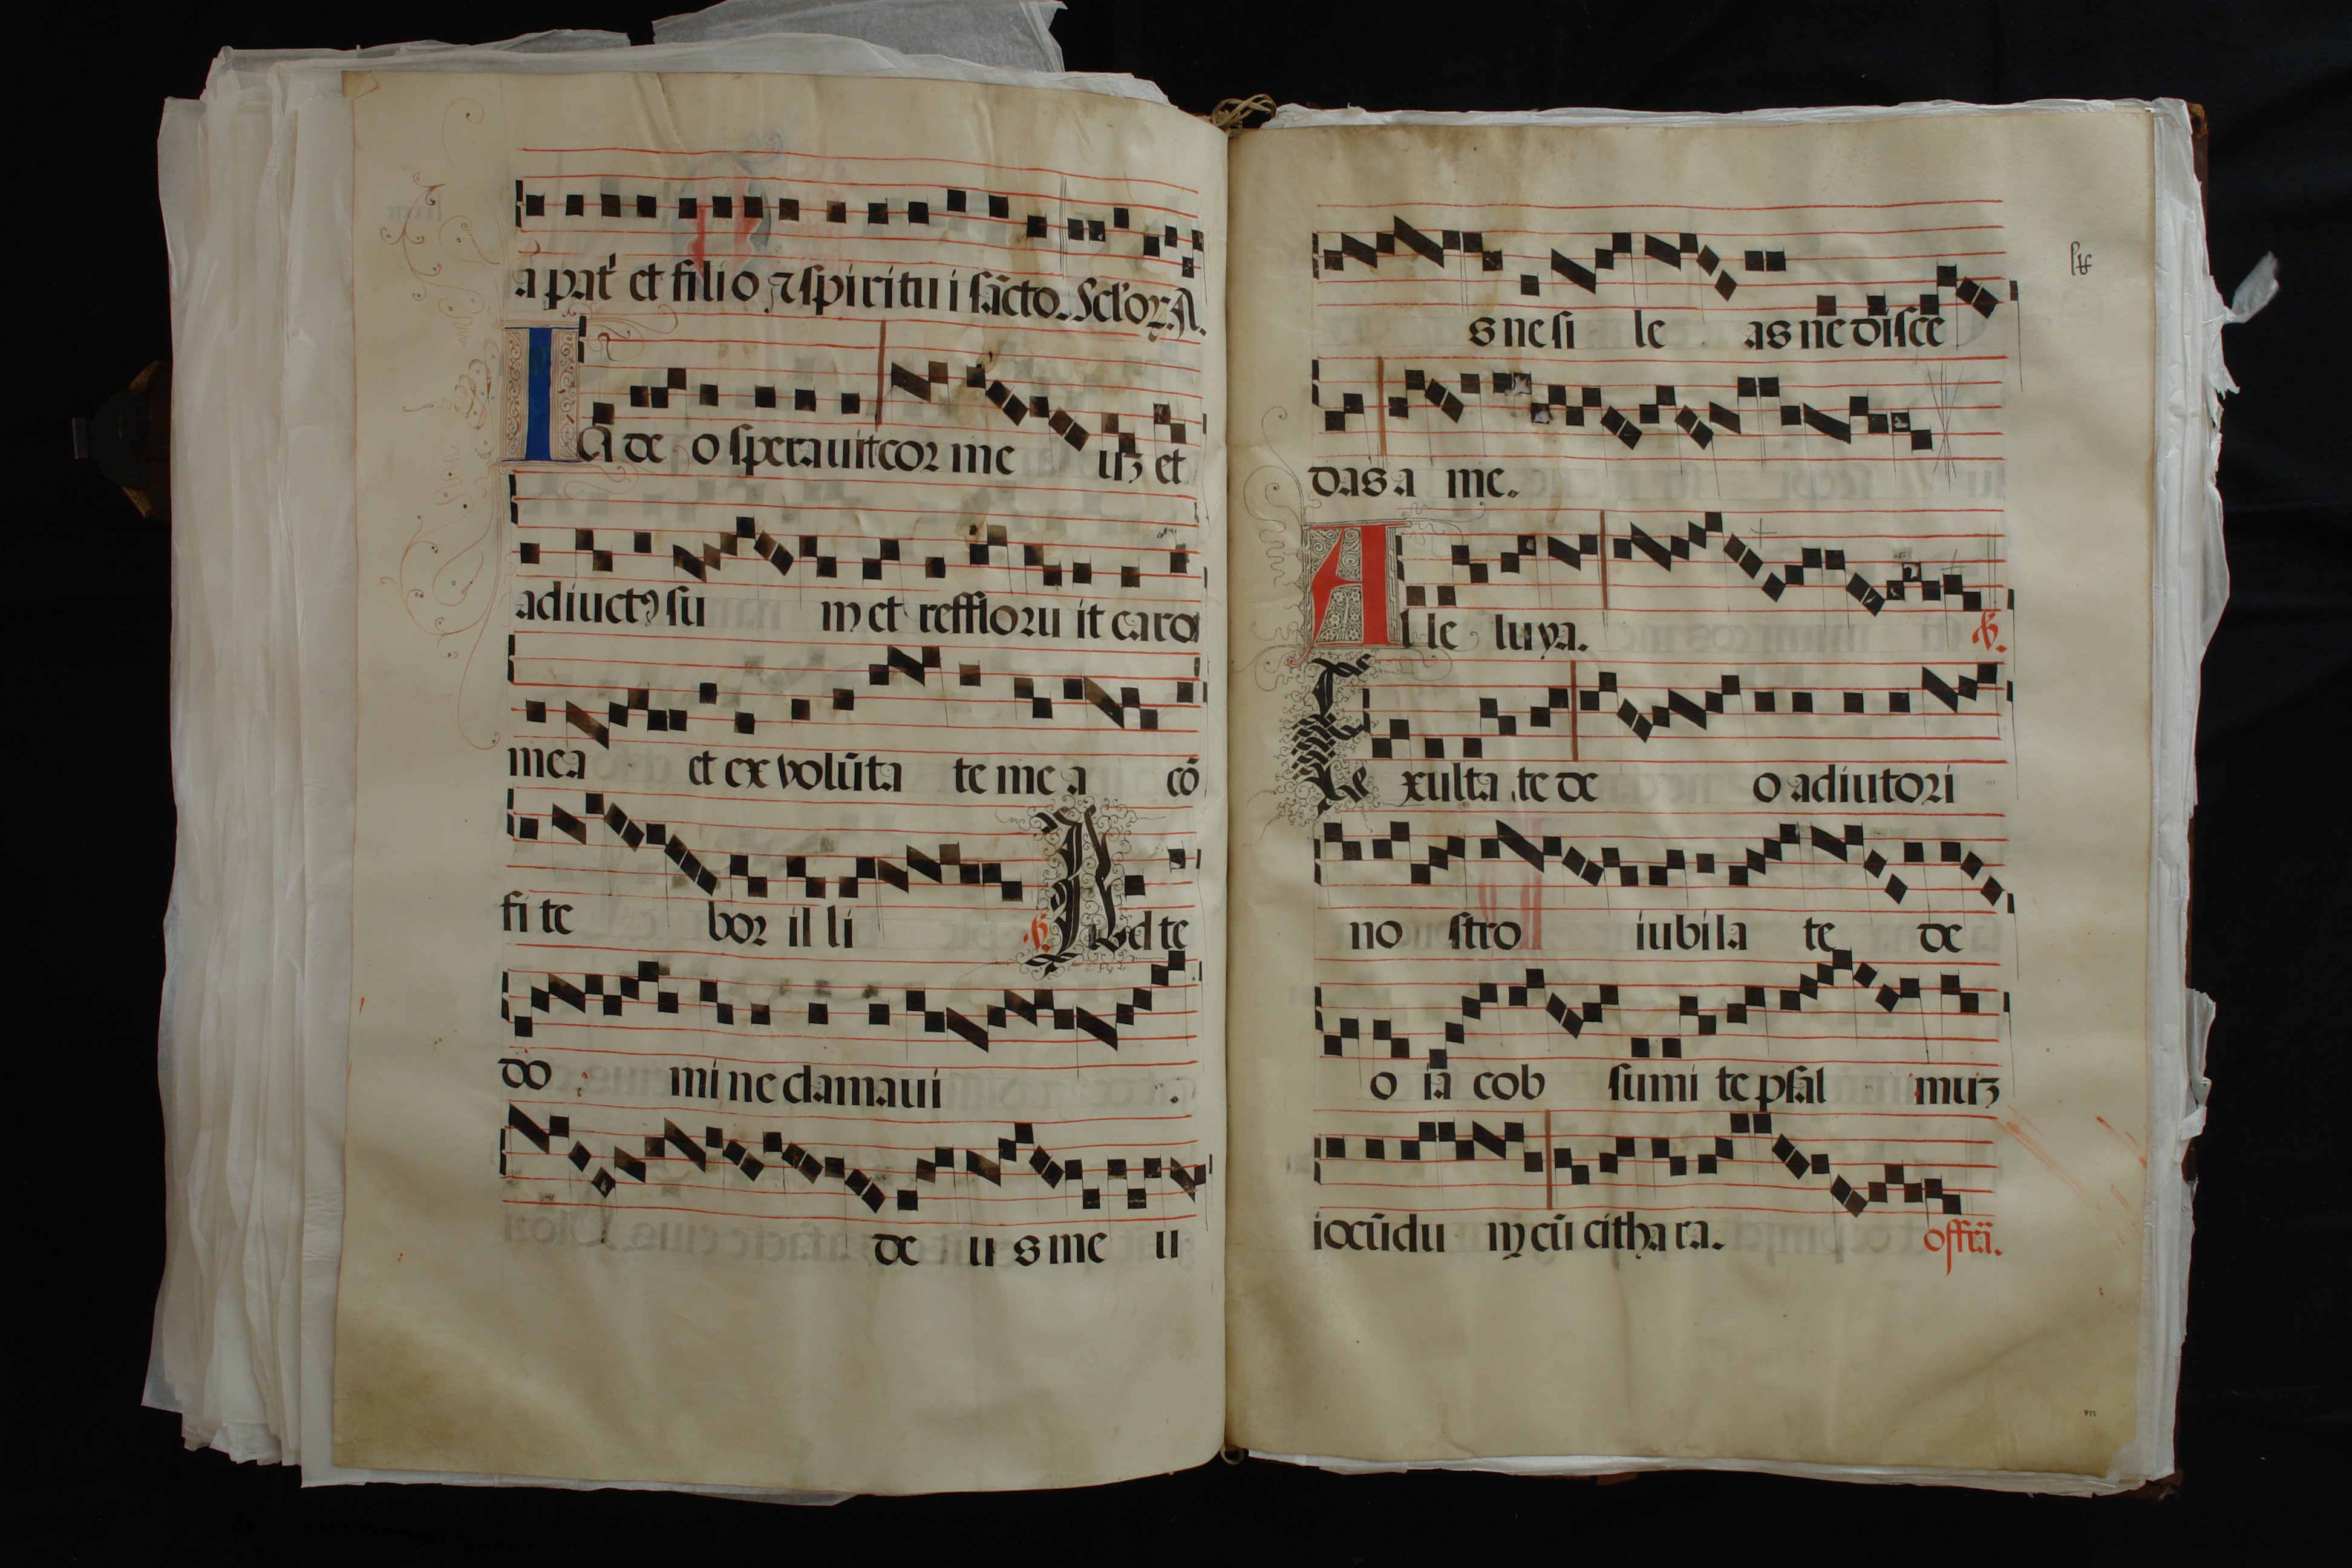 a pat̉ et filio ⁊ spiritu i sācto. Sclõꝝ. A.
In de o sperauit cor me uꝫ et
adiuctꝰ su m et reffloru it caro
mea et ex volūta te me a cō
fi te bor il li ℟. Ad te
do mi ne clamaui
de u s me u
lx
s ne si le as ne disce
das a me.
Al le luya. ℣.
Exulta te de o adiutori
no stro iubila te de
o ia cob sumi te psal muꝫ
iocūdu m cū cithara. offrā.